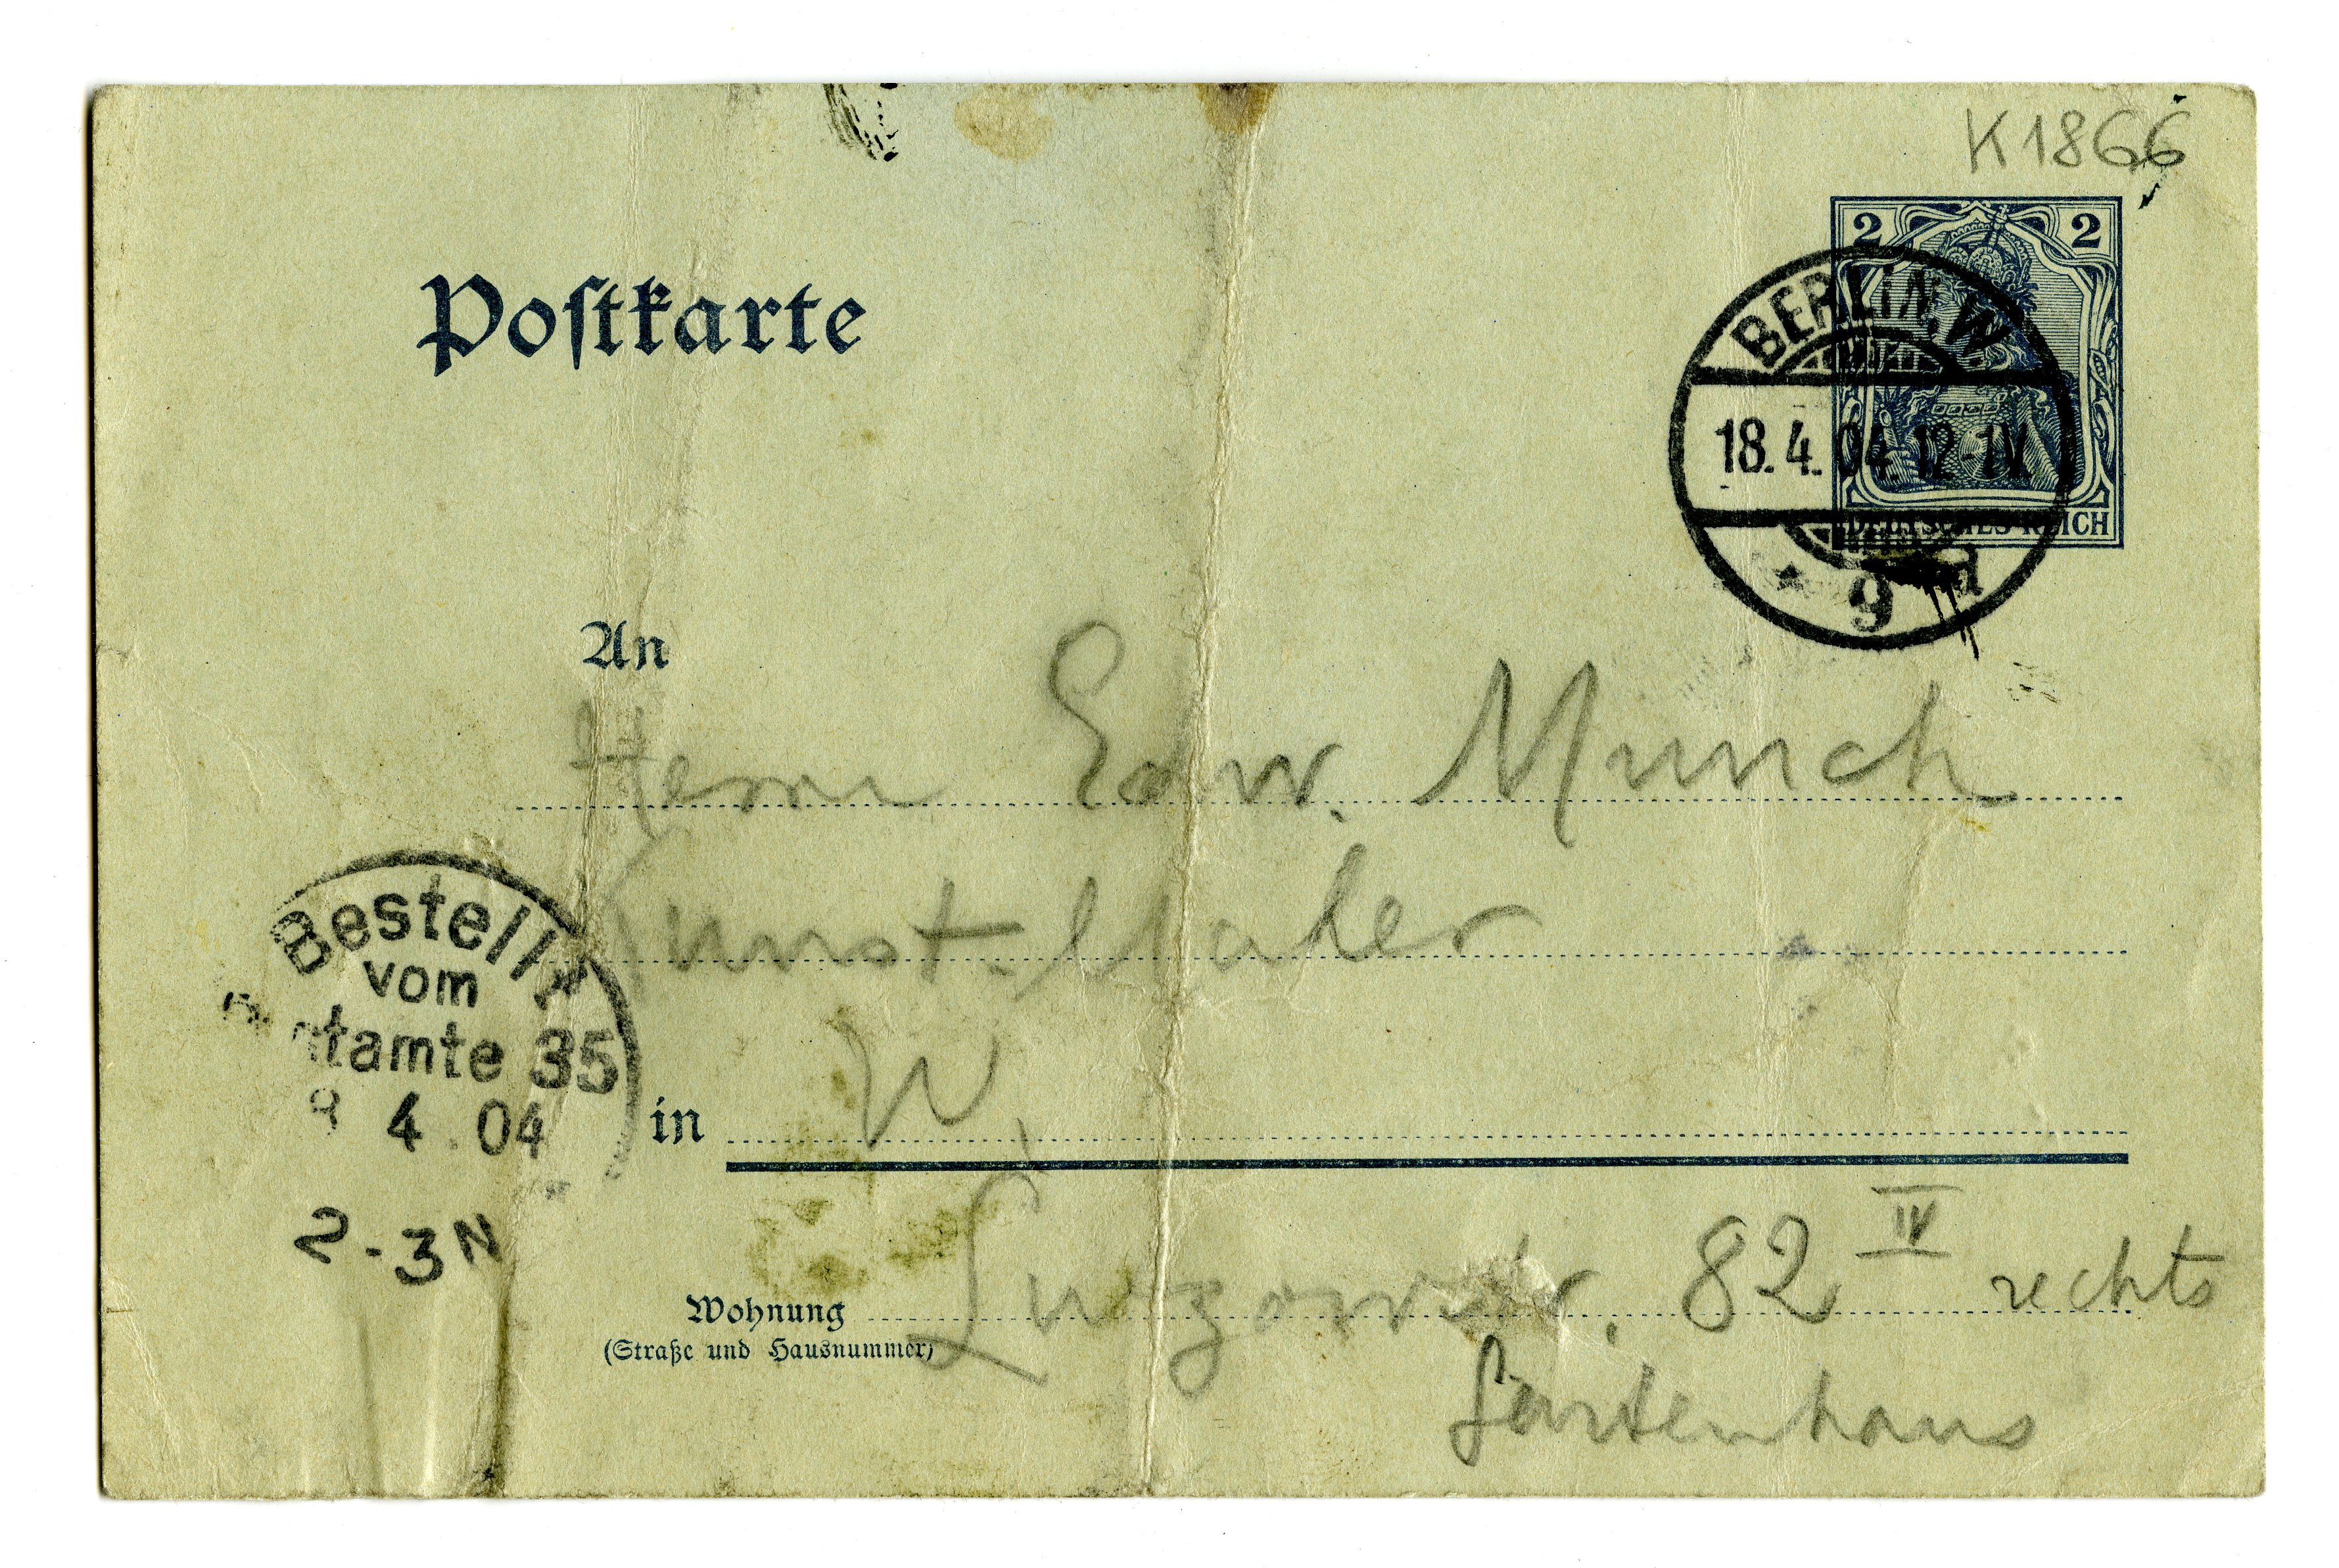 K 1866
Postkarte
2 2
BERLIN. W
18. 4. 04 12-1N.
DEUTSCHES REICH
* 9
An
Herrn Edw. Munch
Kunst-Maler
Bestellt
vom
tamte 35
4. 04
2-3N
in W.
Wohnung Lützowstr. 82 IV rechts
(Straße und Hausnummer)
Gartenhaus